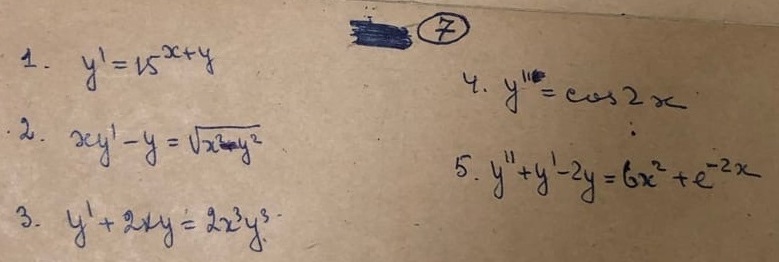 7
1. y' = 15^{x+y}
2. xy' - y = √(x² - y²)
3. y' + 2xy = 2x³y³
4. y'' = cos 2x
5. y'' + y' - 2y = 6x² + e^{-2x}